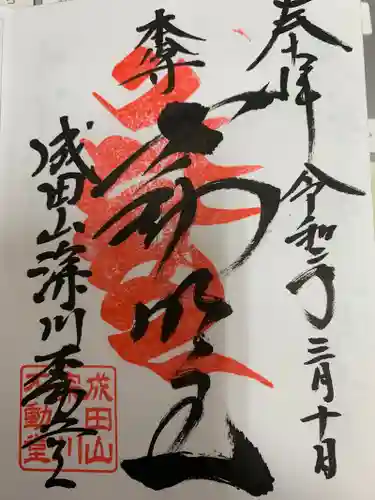 奉拝 令和二年 三月十日
本尊 不動明王
成田山深川不動堂
成田山
深川
不動堂